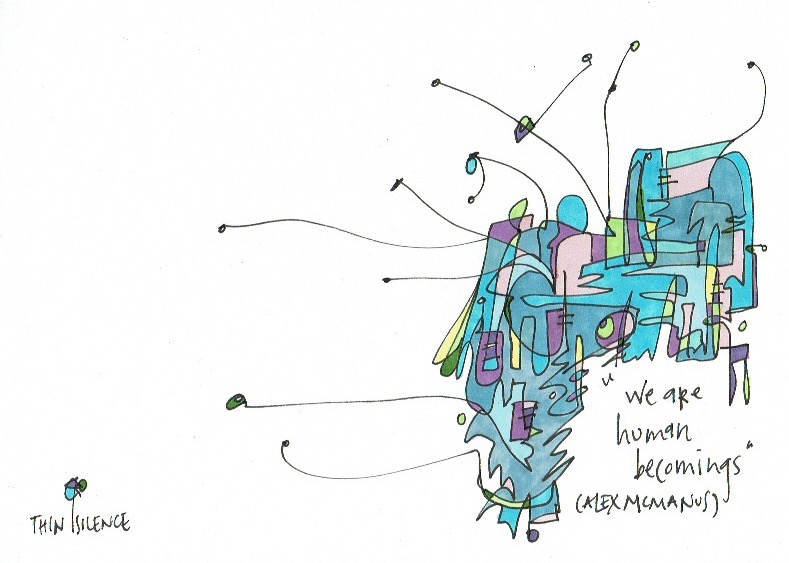 "we are
human
becomings"
(ALEX MCMANUS)
THIN SILENCE